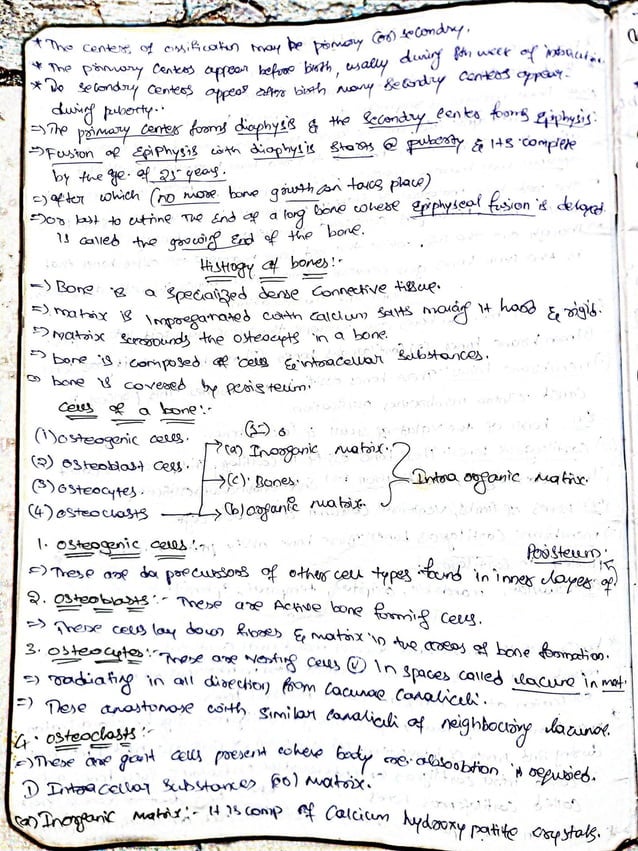 * The centers of ossification may be primary (or) secondry.
* The primary centers appear before birth, usally during 8th week of
* Do secondry centers appear after birth many secondry centers appear.
during puberty..
=> The primary center forms diaphysis & the secondry center forms Epiphysis.
=> Fusion of Epiphysis with diaphysis starts @ puberty & its complete
by the ge. of 25 years.
=> after which (no more bone growth can take place)
=> or last to The End of a long bone where epiphyseal fusion is delayed
is called the growing End of the bone.
Histogy of bones:-
-> Bone is a specialized dense connective tissue.
-> matrix is impregarnated with calcium salts making it hard & rigid.
-> matrix surrounds the osteocyts in a bone.
=> bone is composed of cells & intracellar substances.
bone is covered by peristerium.
Cells of a bone:-
(1) Osteogenic cells.
(a) Inorganic matrix.
(2) Osteoblast cells.
(c). Bones.
Intra organic matrix.
(3) Osteocytes.
(4) Osteoclasts
(b) organic matrix.
1. Osteogenic cells:-
Peristeum.
=> These are da precussors of other cell types found in inner layer of
2. Osteoblasts:- These are Active bone forming cells.
=> These cells lay down fibres & matrix in the areas of bone formation.
3. Osteocytes:- These are resting cells In spaces called lacune in mat.
=> radiating in all direction, from lacunae canaliculi.
=> These anastonose with similar canaliculi of neighbouring lacunae.
4. Osteoclasts:-
=> These are giant cells present where body absorbtion is requried.
1) Intracellar substances (or) matrix.
(a) Inorganic matrix:- It is comp of Calcium hydroxy patite crystals.